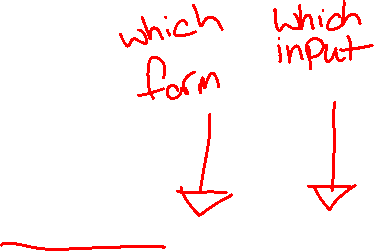 which
form
which
input